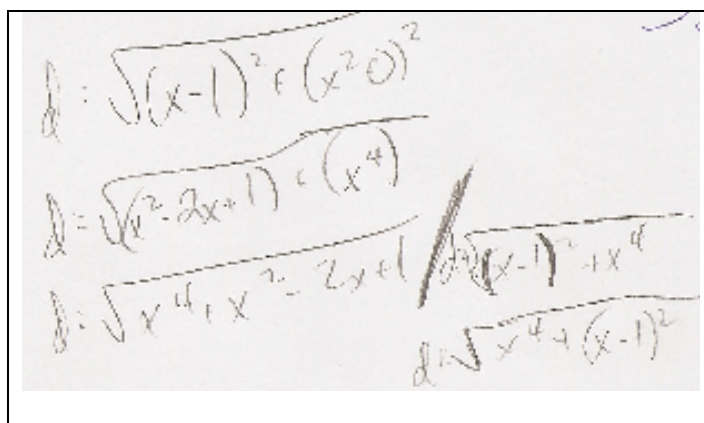 d = √(x-1)² + (x² 0)²
d = √(x²-2x+1) + (x⁴)
d = √x⁴ + x² - 2x + 1
d = √(x-1)² + x⁴
d = √x⁴ + (x-1)²